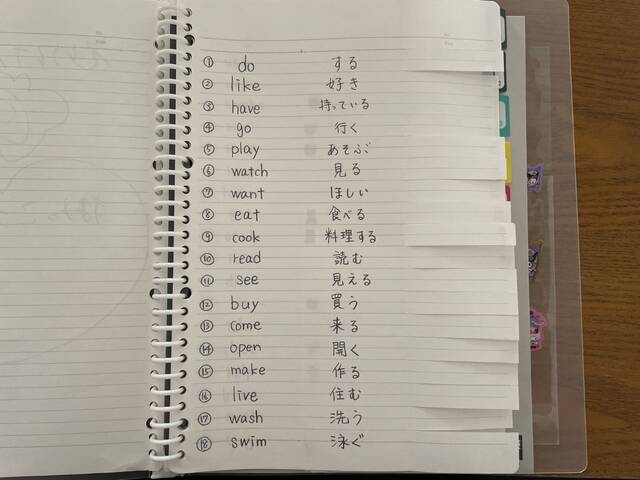 ① do する
② like 好き
③ have 持っている
④ go 行く
⑤ play あそぶ
⑥ watch 見る
⑦ want ほしい
⑧ eat 食べる
⑨ cook 料理する
⑩ read 読む
⑪ see 見える
⑫ buy 買う
⑬ come 来る
⑭ open 開く
⑮ make 作る
⑯ live 住む
⑰ wash 洗う
⑱ swim 泳ぐ